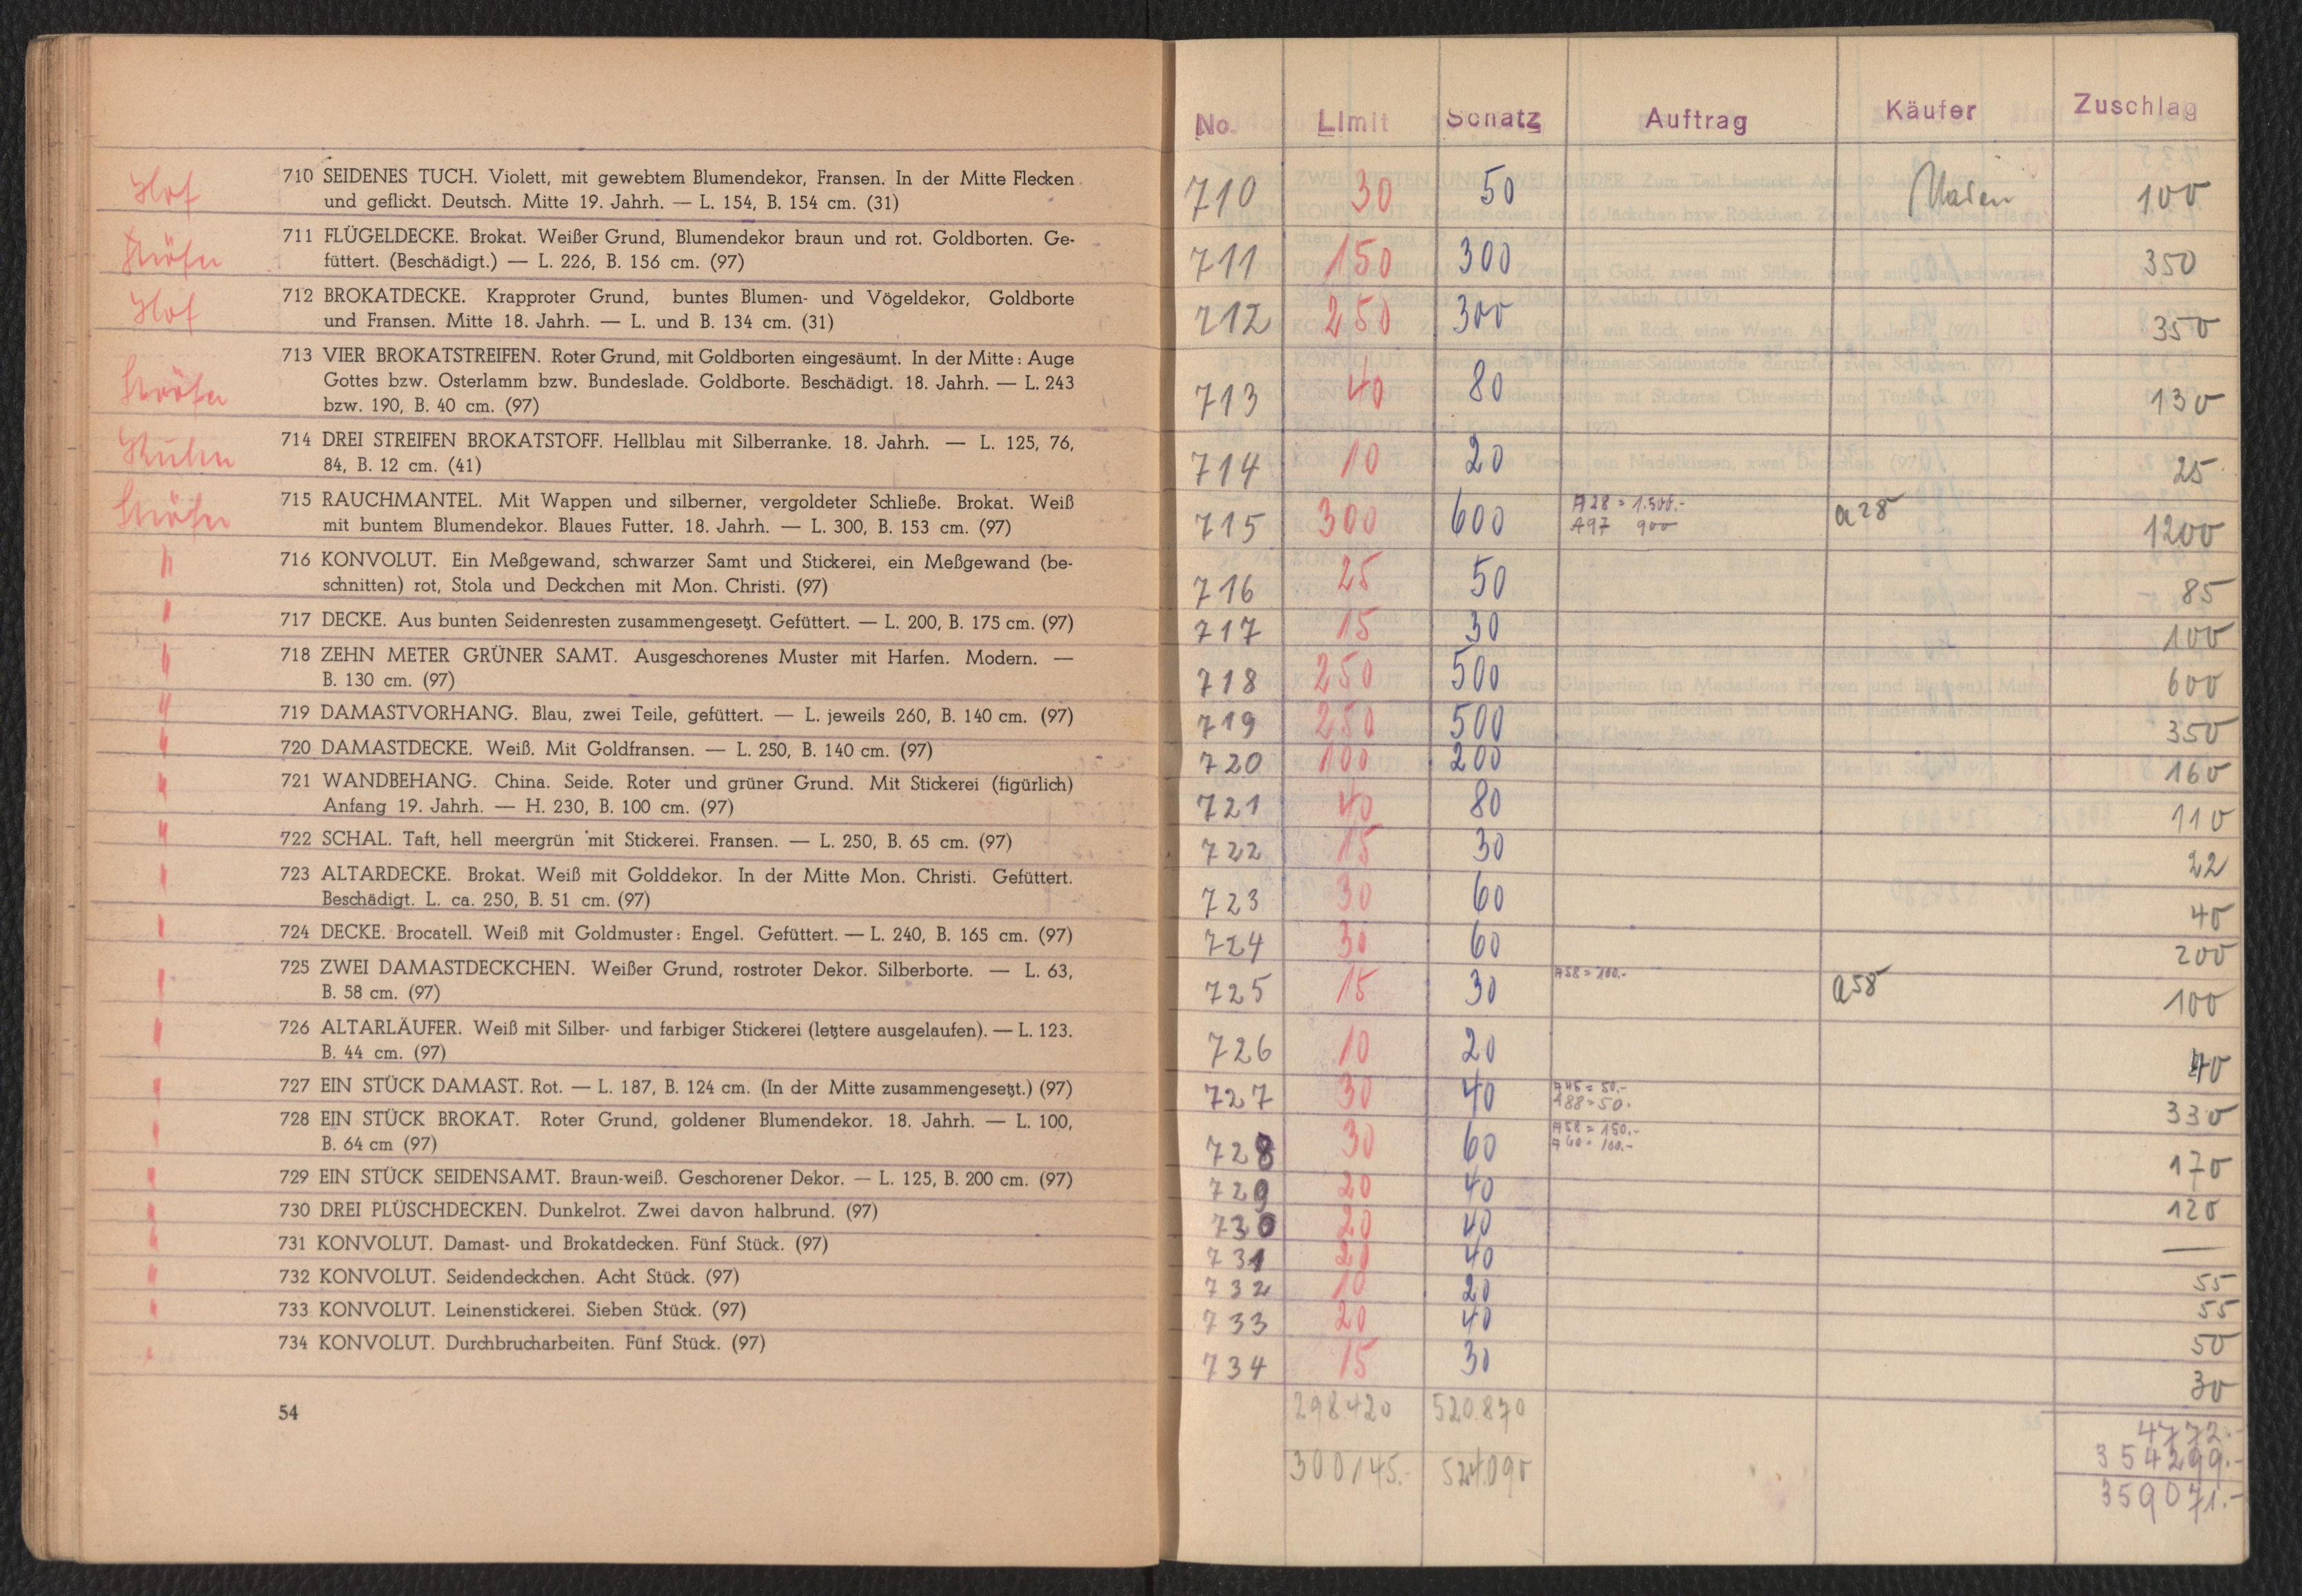 Hof
710 SEIDENES TUCH. Violett, mit gewebtem Blumendekor, Fransen. In der Mitte Flecken
und geflickt. Deutsch. Mitte 19. Jahrh. — L. 154, B. 154 cm. (31)
711 FLÜGELDECKE. Brokat. Weißer Grund, Blumendekor braun und rot. Goldborten. Ge-
füttert. (Beschädigt.) — L. 226, B. 156 cm. (97)
Hof
712 BROKATDECKE. Krapproter Grund, buntes Blumen- und Vögeldekor, Goldborte
und Fransen. Mitte 18. Jahrh. — L. und B. 134 cm. (31)
713 VIER BROKATSTREIFEN. Roter Grund, mit Goldborten eingesäumt. In der Mitte: Auge
Gottes bzw. Osterlamm bzw. Bundeslade. Goldborte. Beschädigt. 18. Jahrh. — L. 243
bzw. 190, B. 40 cm. (97)
714 DREI STREIFEN BROKATSTOFF. Hellblau mit Silberranke. 18. Jahrh. — L. 125, 76,
84, B. 12 cm. (41)
715 RAUCHMANTEL. Mit Wappen und silberner, vergoldeter Schließe. Brokat. Weiß
mit buntem Blumendekor. Blaues Futter. 18. Jahrh. — L. 300, B. 153 cm. (97)
716 KONVOLUT. Ein Meßgewand, schwarzer Samt und Stickerei, ein Meßgewand (be-
schnitten) rot, Stola und Deckchen mit Mon. Christi. (97)
717 DECKE. Aus bunten Seidenresten zusammengesetzt. Gefüttert. — L. 200, B. 175 cm. (97)
718 ZEHN METER GRÜNER SAMT. Ausgeschorenes Muster mit Harfen. Modern. —
B. 130 cm. (97)
719 DAMASTVORHANG. Blau, zwei Teile, gefüttert. — L. jeweils 260, B. 140 cm. (97)
720 DAMASTDECKE. Weiß. Mit Goldfransen. — L. 250, B. 140 cm. (97)
721 WANDBEHANG. China. Seide. Roter und grüner Grund. Mit Stickerei (figürlich)
Anfang 19. Jahrh. — H. 230, B. 100 cm. (97)
722 SCHAL. Taft, hell meergrün mit Stickerei. Fransen. — L. 250, B. 65 cm. (97)
723 ALTARDECKE. Brokat. Weiß mit Golddekor. In der Mitte Mon. Christi. Gefüttert.
Beschädigt. L. ca. 250, B. 51 cm. (97)
724 DECKE. Brocatell. Weiß mit Goldmuster: Engel. Gefüttert. — L. 240, B. 165 cm. (97)
725 ZWEI DAMASTDECKCHEN. Weißer Grund, rostroter Dekor. Silberborte. — L. 63,
B. 58 cm. (97)
726 ALTARLÄUFER. Weiß mit Silber- und farbiger Stickerei (letztere ausgelaufen). — L. 123.
B. 44 cm. (97)
727 EIN STÜCK DAMAST. Rot. — L. 187, B. 124 cm. (In der Mitte zusammengesetzt.) (97)
728 EIN STÜCK BROKAT. Roter Grund, goldener Blumendekor. 18. Jahrh. — L. 100,
B. 64 cm (97)
729 EIN STÜCK SEIDENSAMT. Braun-weiß. Geschorener Dekor. — L. 125, B. 200 cm. (97)
730 DREI PLÜSCHDECKEN. Dunkelrot. Zwei davon halbrund. (97)
731 KONVOLUT. Damast- und Brokatdecken. Fünf Stück. (97)
732 KONVOLUT. Seidendeckchen. Acht Stück. (97)
733 KONVOLUT. Leinenstickerei. Sieben Stück. (97)
734 KONVOLUT. Durchbrucharbeiten. Fünf Stück. (97)
54
No. Limit Schatz Auftrag Käufer Zuschlag
710 30 50 100
711 150 300 350
712 250 300 350
713 40 80 130
714 10 20 25
715 300 600 A28 = 1.500.- a28 1200
A97 900
716 25 50 85
717 15 30 100
718 250 500 600
719 250 500 350
720 100 200 160
721 40 80 110
722 15 30 22
723 30 60 40
724 30 60 200
725 15 30 A58 = 100.- a58 100
726 10 20 40
727 30 40 A45 = 50.- 330
A88 = 50.
728 30 60 A58 = 150.- 170
A60 = 100.-
729 20 40 120
730 20 40 —
731 20 40 55
732 10 20 55
733 20 40 50
734 15 30 30
298420 520.870 4772.-
354299.-
300145.- 524.090 359071.-